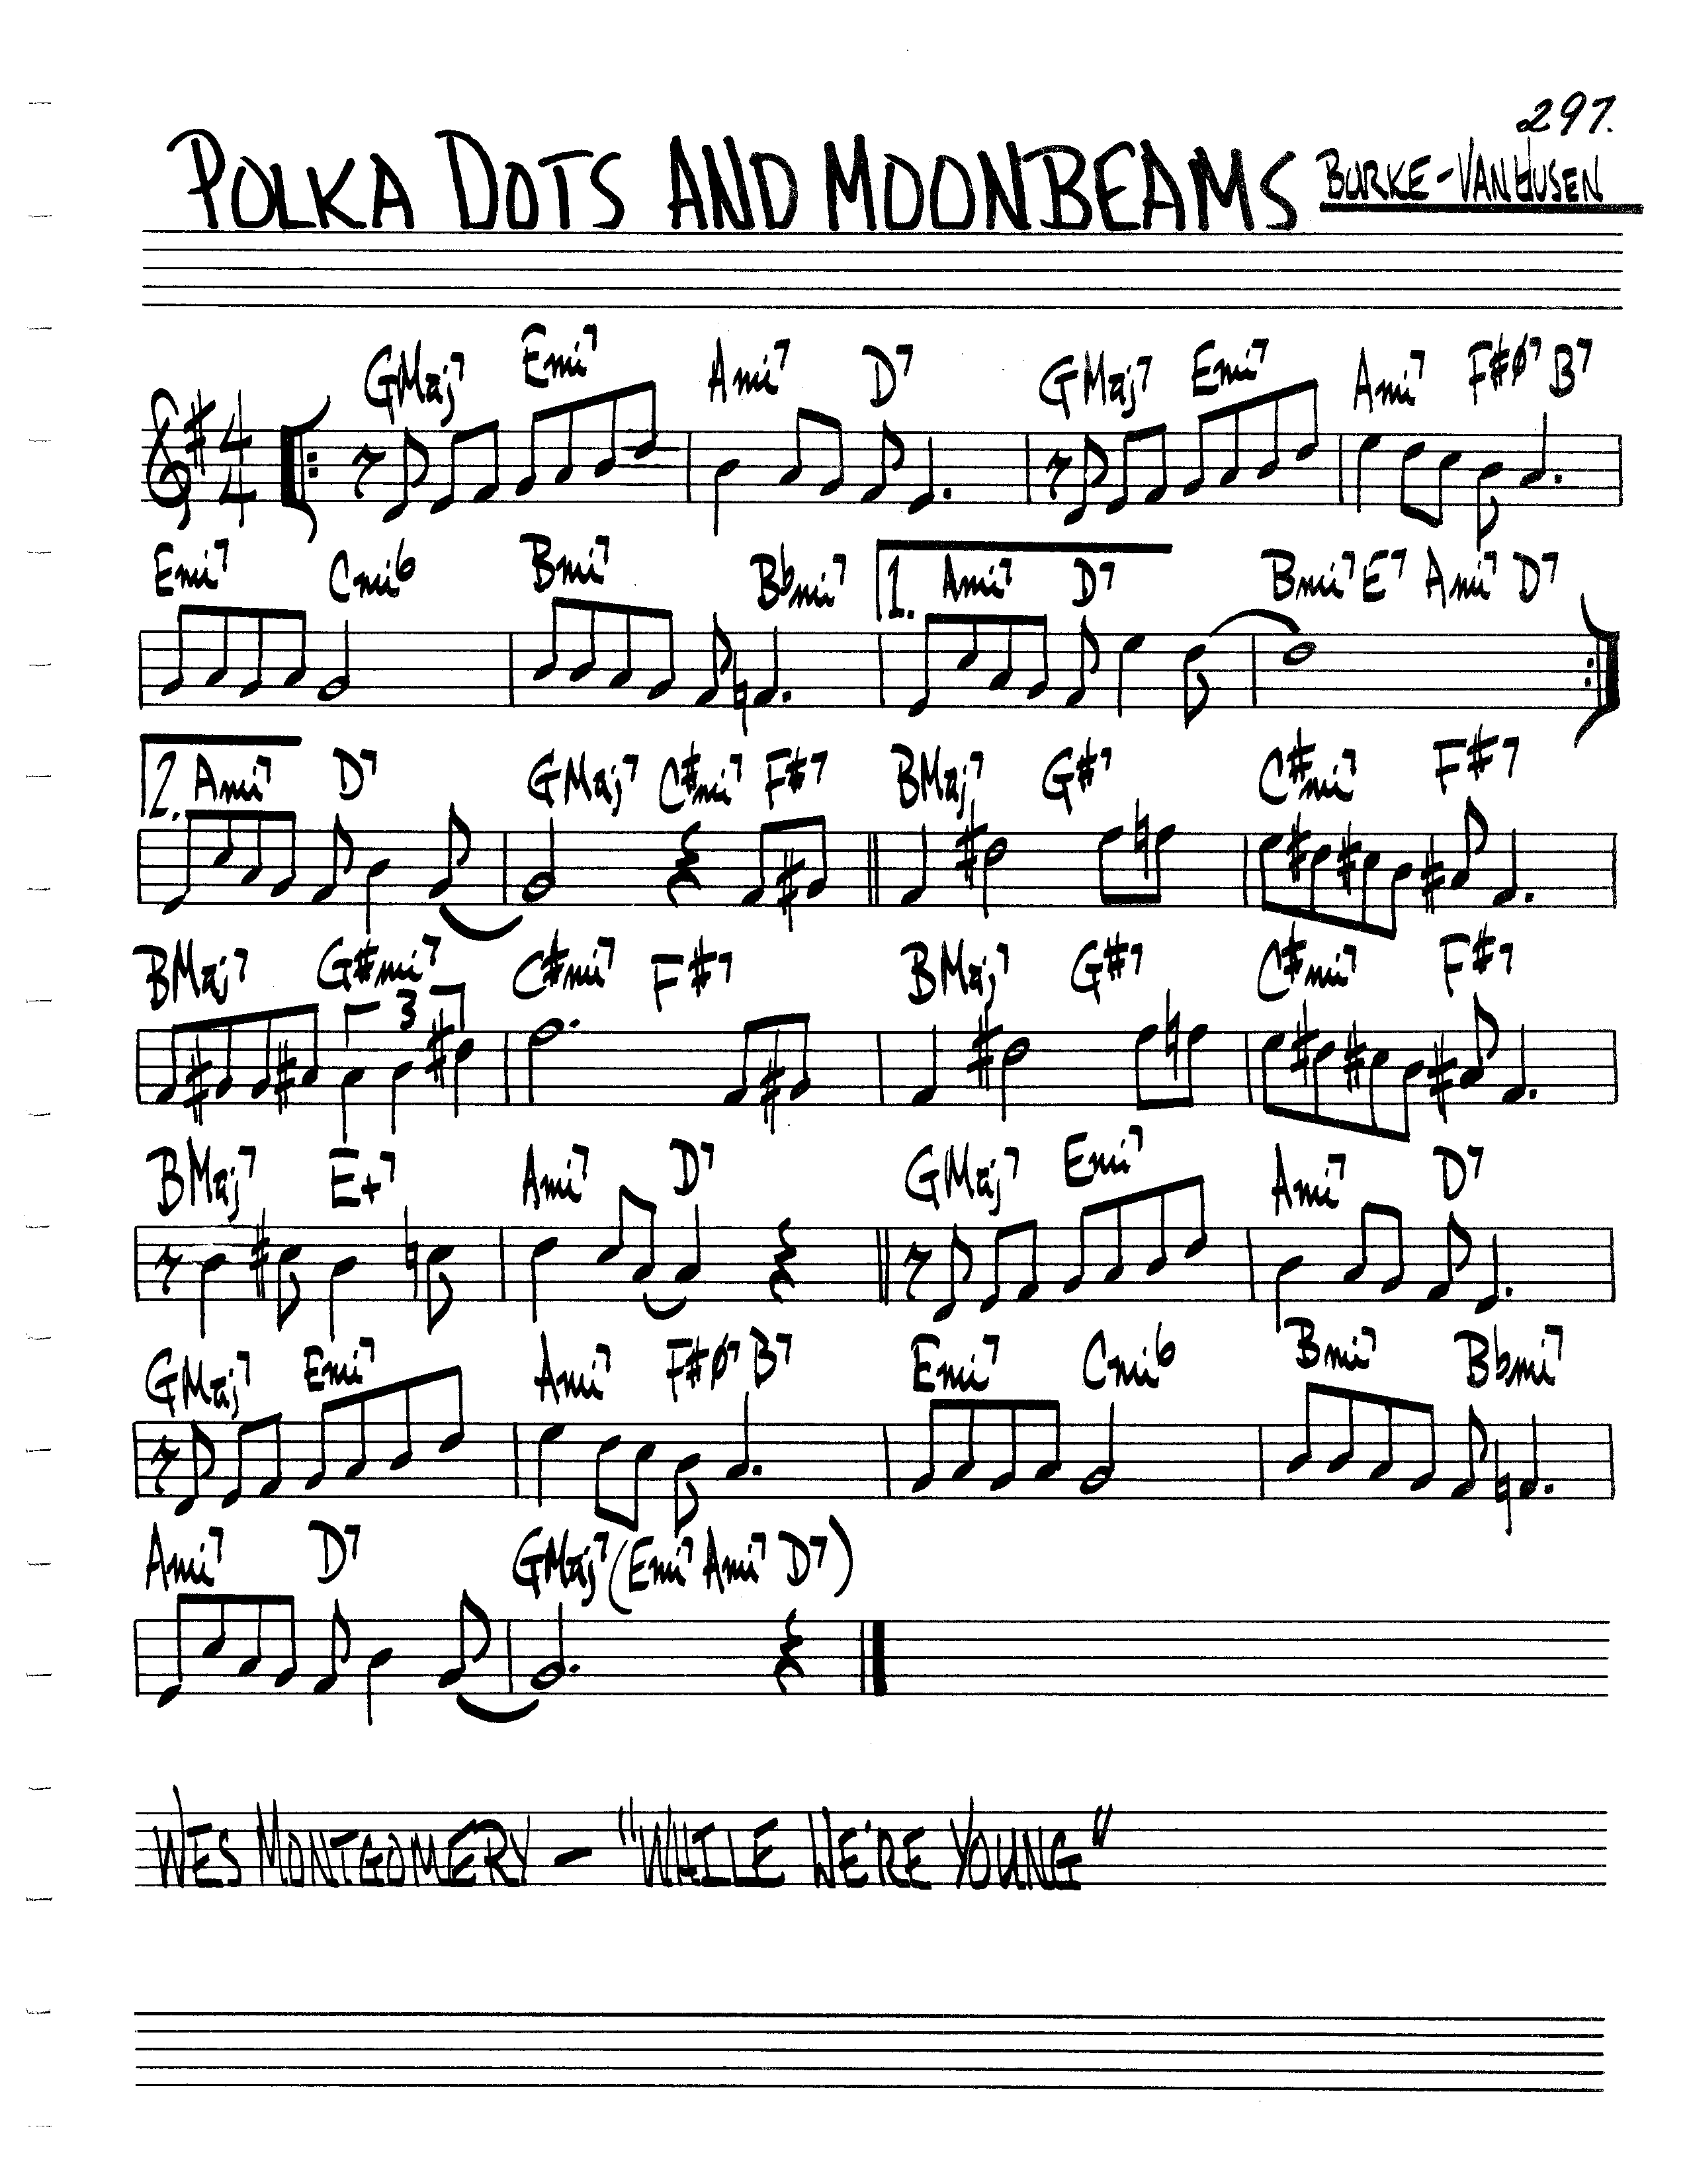 297.
POLKA DOTS AND MOONBEAMS BURKE-VAN HUSEN
GMaj7 Emi7 Ami7 D7 GMaj7 Emi7 Ami7 F#ø7 B7
4
4
Emi7 Cmi6 Bmi7 Bbmi7 1. Ami7 D7 Bmi7 E7 Ami7 D7
2. Ami7 D7 GMaj7 C#mi7 F#7 BMaj7 G#7 C#mi7 F#7
BMaj7 G#mi7 C#mi7 F#7 BMaj7 G#7 C#mi7 F#7
3
BMaj7 E+7 Ami7 D7 GMaj7 Emi7 Ami7 D7
GMaj7 Emi7 Ami7 F#ø7 B7 Emi7 Cmi6 Bmi7 Bbmi7
Ami7 D7 GMaj7 (Emi7 Ami7 D7)
WES MONTGOMERY - "WHILE WE'RE YOUNG"